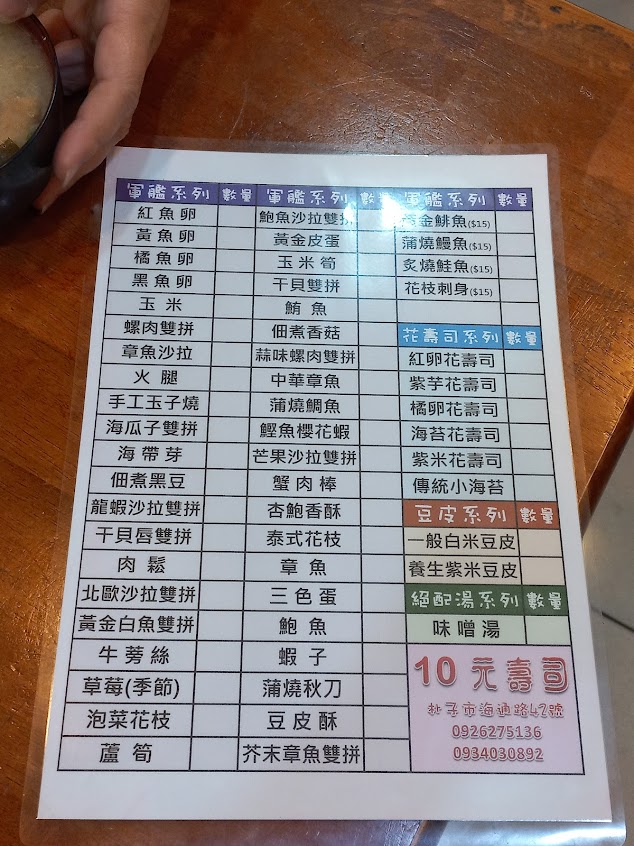 軍艦系列 數量 軍艦系列 數量 軍艦系列 數量
紅魚卵 鮑魚沙拉雙拼 金鯡魚($15)
黃魚卵 黃金皮蛋 蒲燒鰻魚($15)
橘魚卵 玉米筍 炙燒鮭魚($15)
黑魚卵 干貝雙拼 花枝刺身($15)
玉米 鮪魚
螺肉雙拼 佃煮香菇 花壽司系列 數量
章魚沙拉 蒜味螺肉雙拼 紅卵花壽司
火腿 中華章魚 紫芋花壽司
手工玉子燒 蒲燒鯛魚 橘卵花壽司
海瓜子雙拼 鰹魚櫻花蝦 海苔花壽司
海帶芽 芒果沙拉雙拼 紫米花壽司
佃煮黑豆 蟹肉棒 傳統小海苔
龍蝦沙拉雙拼 杏鮑香酥 豆皮系列 數量
干貝唇雙拼 泰式花枝 一般白米豆皮
肉鬆 章魚 養生紫米豆皮
北歐沙拉雙拼 三色蛋 絕配湯系列 數量
黃金白魚雙拼 鮑魚 味噌湯
牛蒡絲 蝦子 10元壽司
草莓(季節) 蒲燒秋刀 朴子市海通路42號
泡菜花枝 豆皮酥 0926275136
蘆筍 芥末章魚雙拼 0934030892